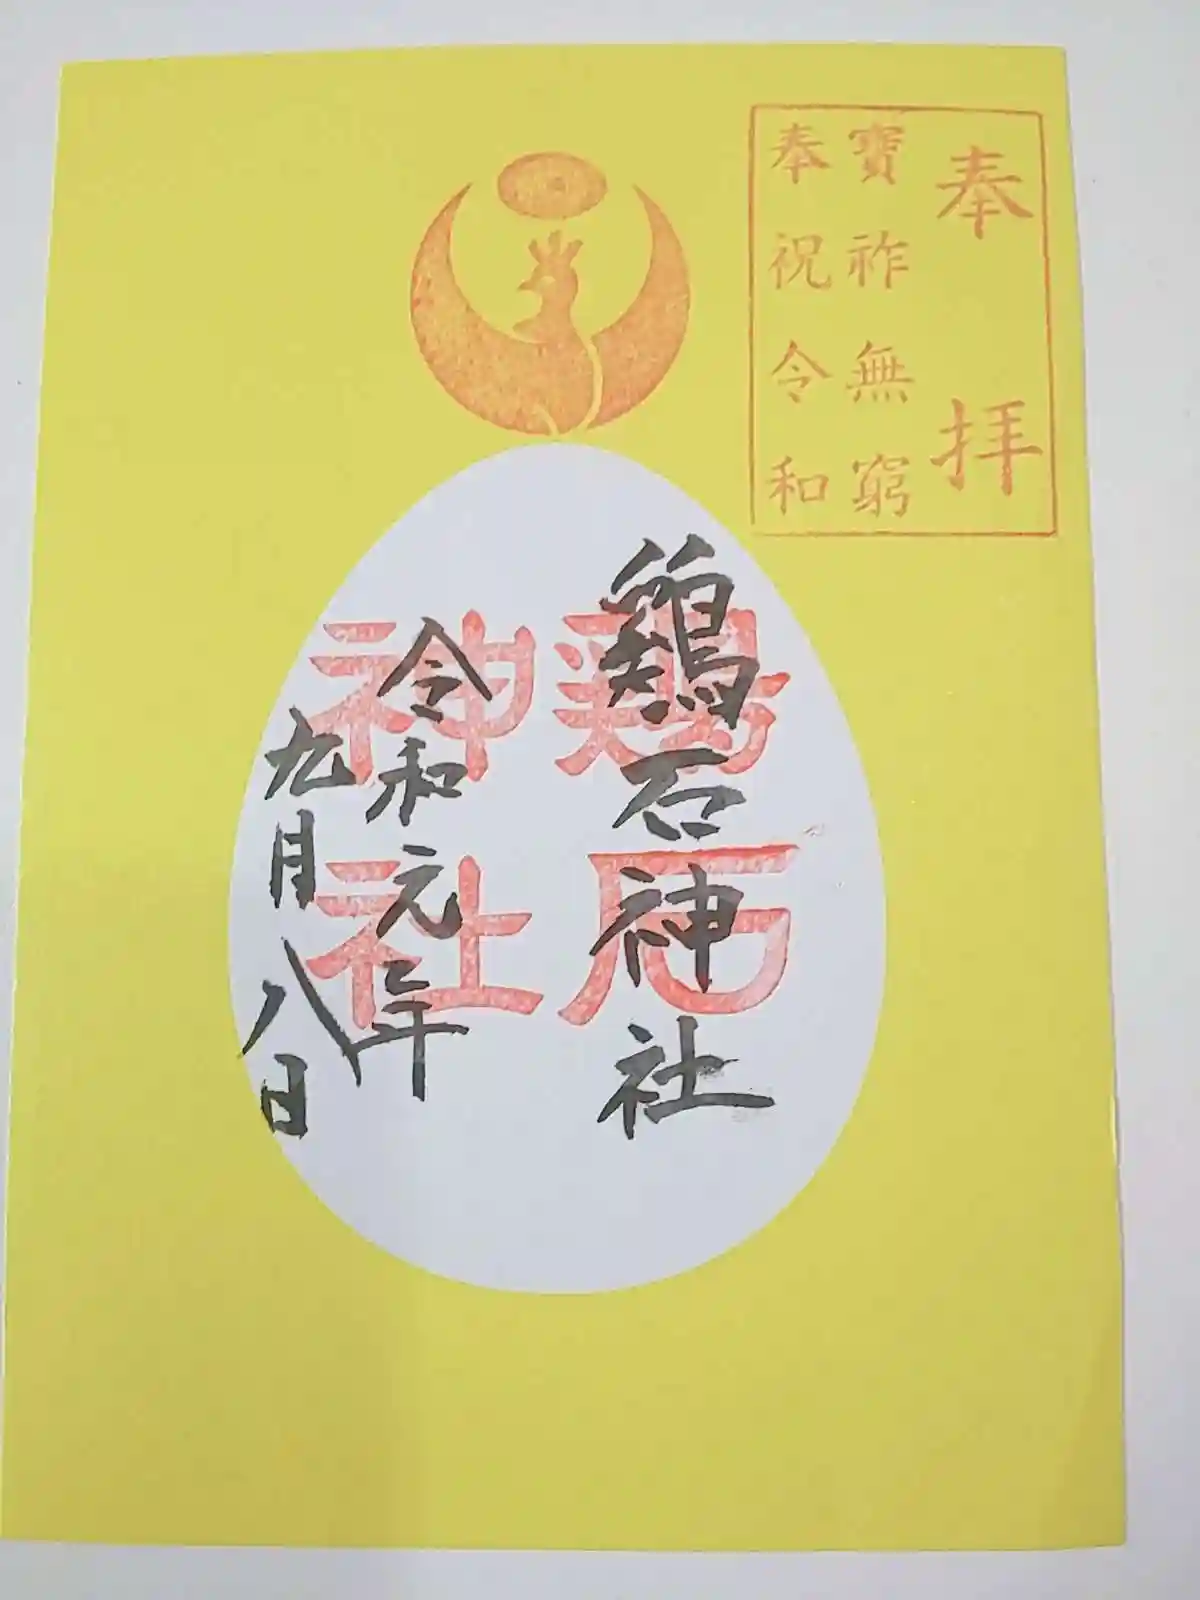 奉拝
寶祚無窮
奉祝令和
鶏石神社
鶏石
神社
令和元年
九月八日